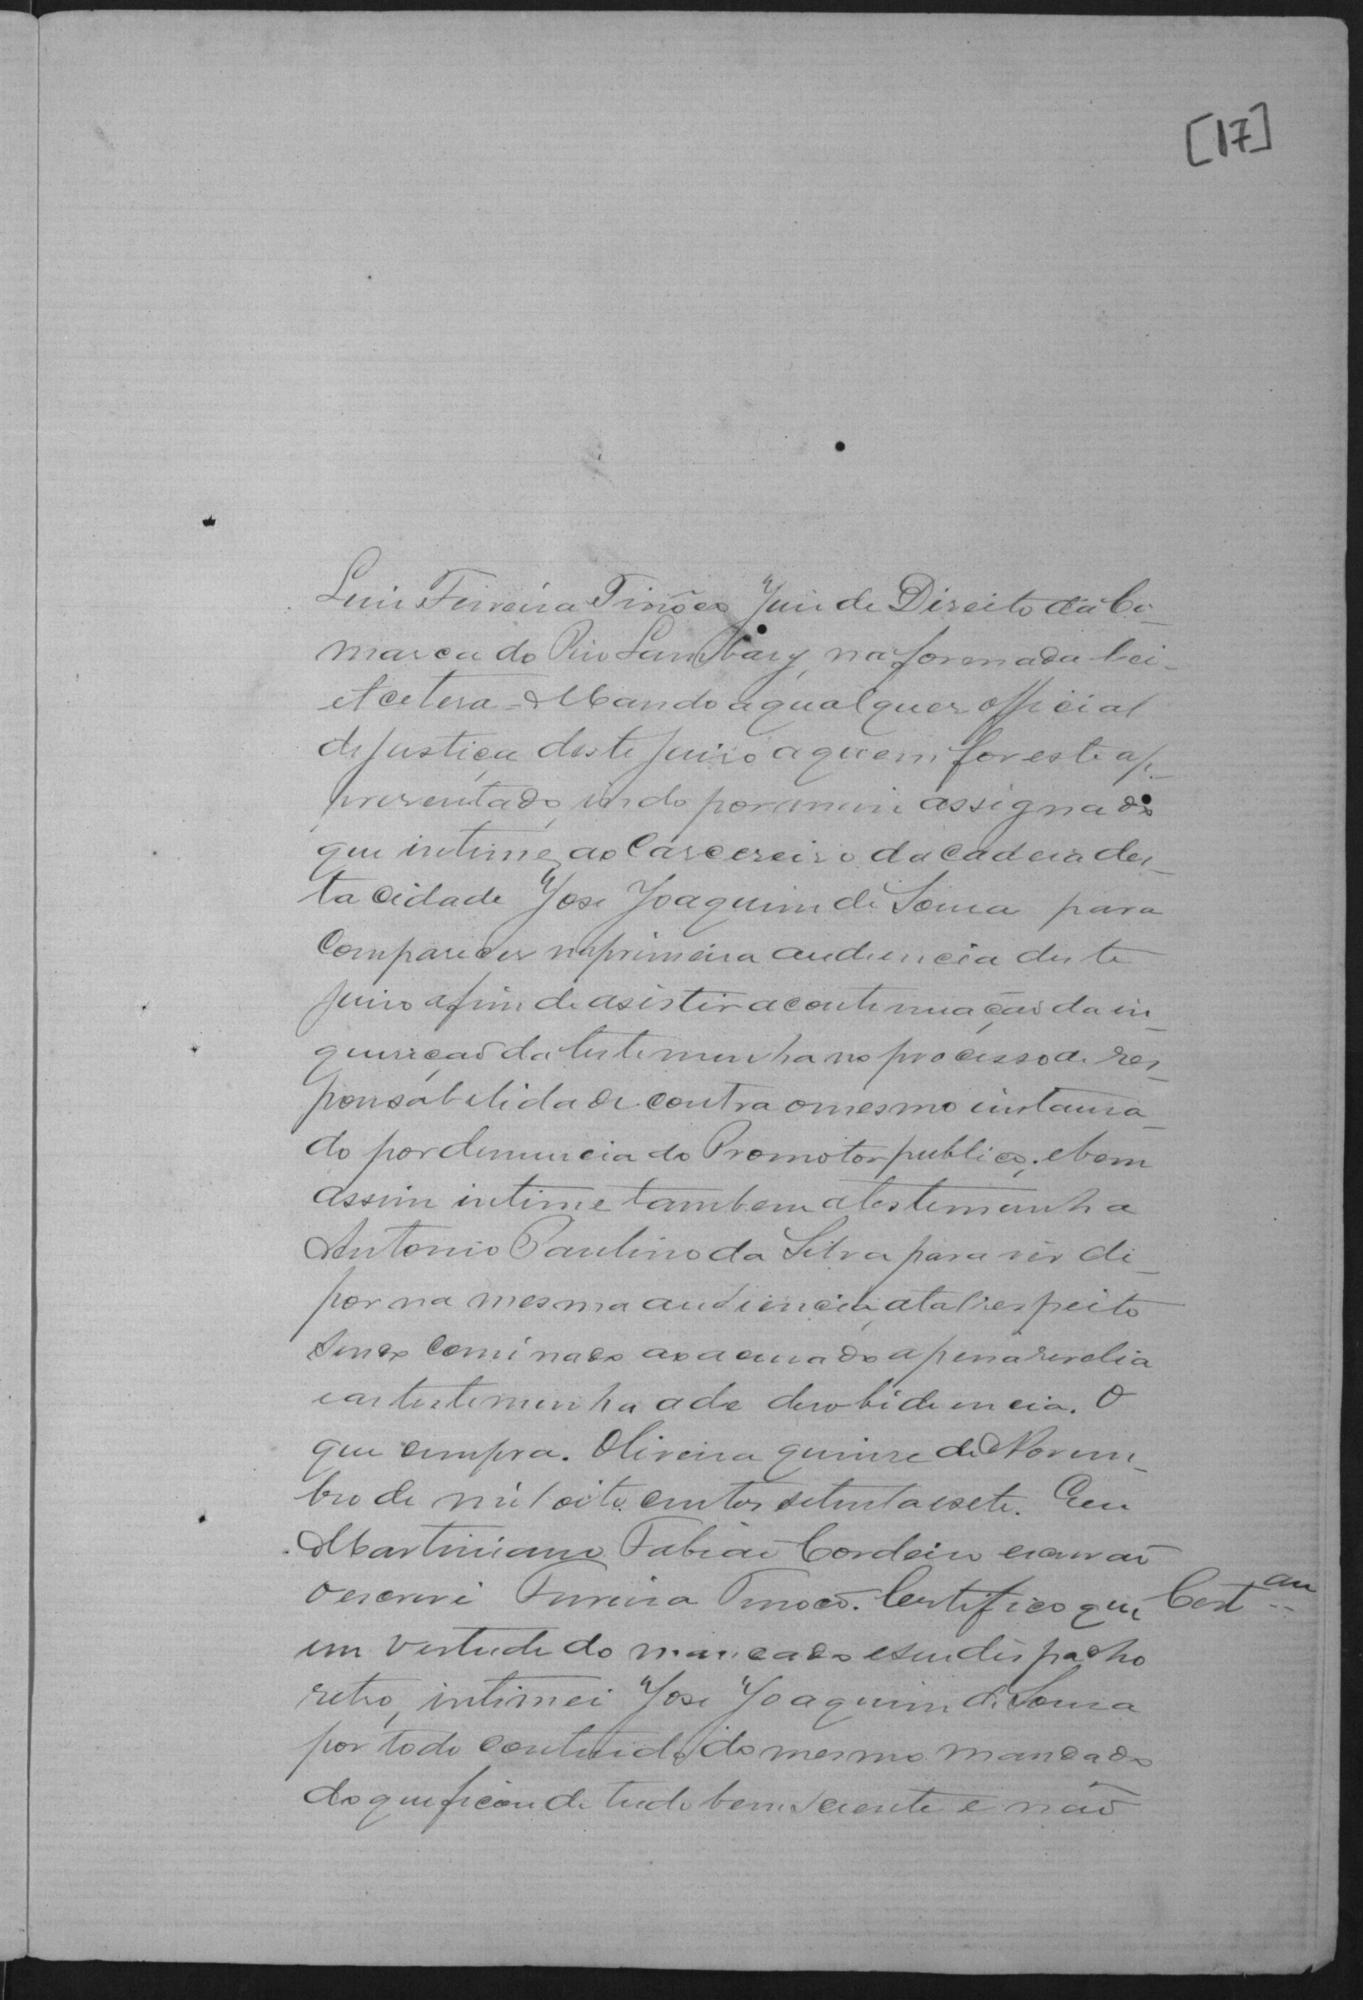 [17]
Luis Ferreira Tinôco Juis de Direito da Co-
marca do Rio Lambary, na forma da Lei-
et cetera = Mando a qualquer official
de justiça deste juiso a quem for este ap-
presentado, indo por mim assignado
que intime ao Carcereiro da Cadeia des-
ta Cidade José Joaquim de Sousa para
Comparecer na primeira audiencia deste
juiso afim de asistir a continuação da in-
quirição da testemunha no processo de res-
ponsabelidade contra o mesmo instaura-
do por denuncia do Promotor publico; e bem
assim intime tambem a testemunha
Antonio Paulino da Silva para vir de-
por na mesma audiencia, a tal respeito
sendo cominado ao acusado a pena revelia
e as testemunha a de desobidencia. O
que cumpra. Oliveira quinse de Novem-
bro de mil oito centos setenta e sete. Eeu
Martiniano Fabião Cordeiro escrivão
o escrevi Ferreira Tinoco. Certifico que
Cert.am
em vertude do mandado e seu despacho
retro, intimei José Joaquim de Sousa
por todo conteudo do mesmo mandado
do que ficou de tudo bem sciente e não